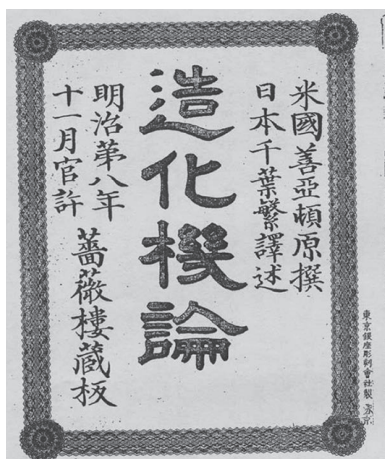 米國善亞頓原撰
日本千葉繁譯述
造化機論
明治第八年
十一月官許
薔薇樓蔵板
東京銀座彫刻會社製